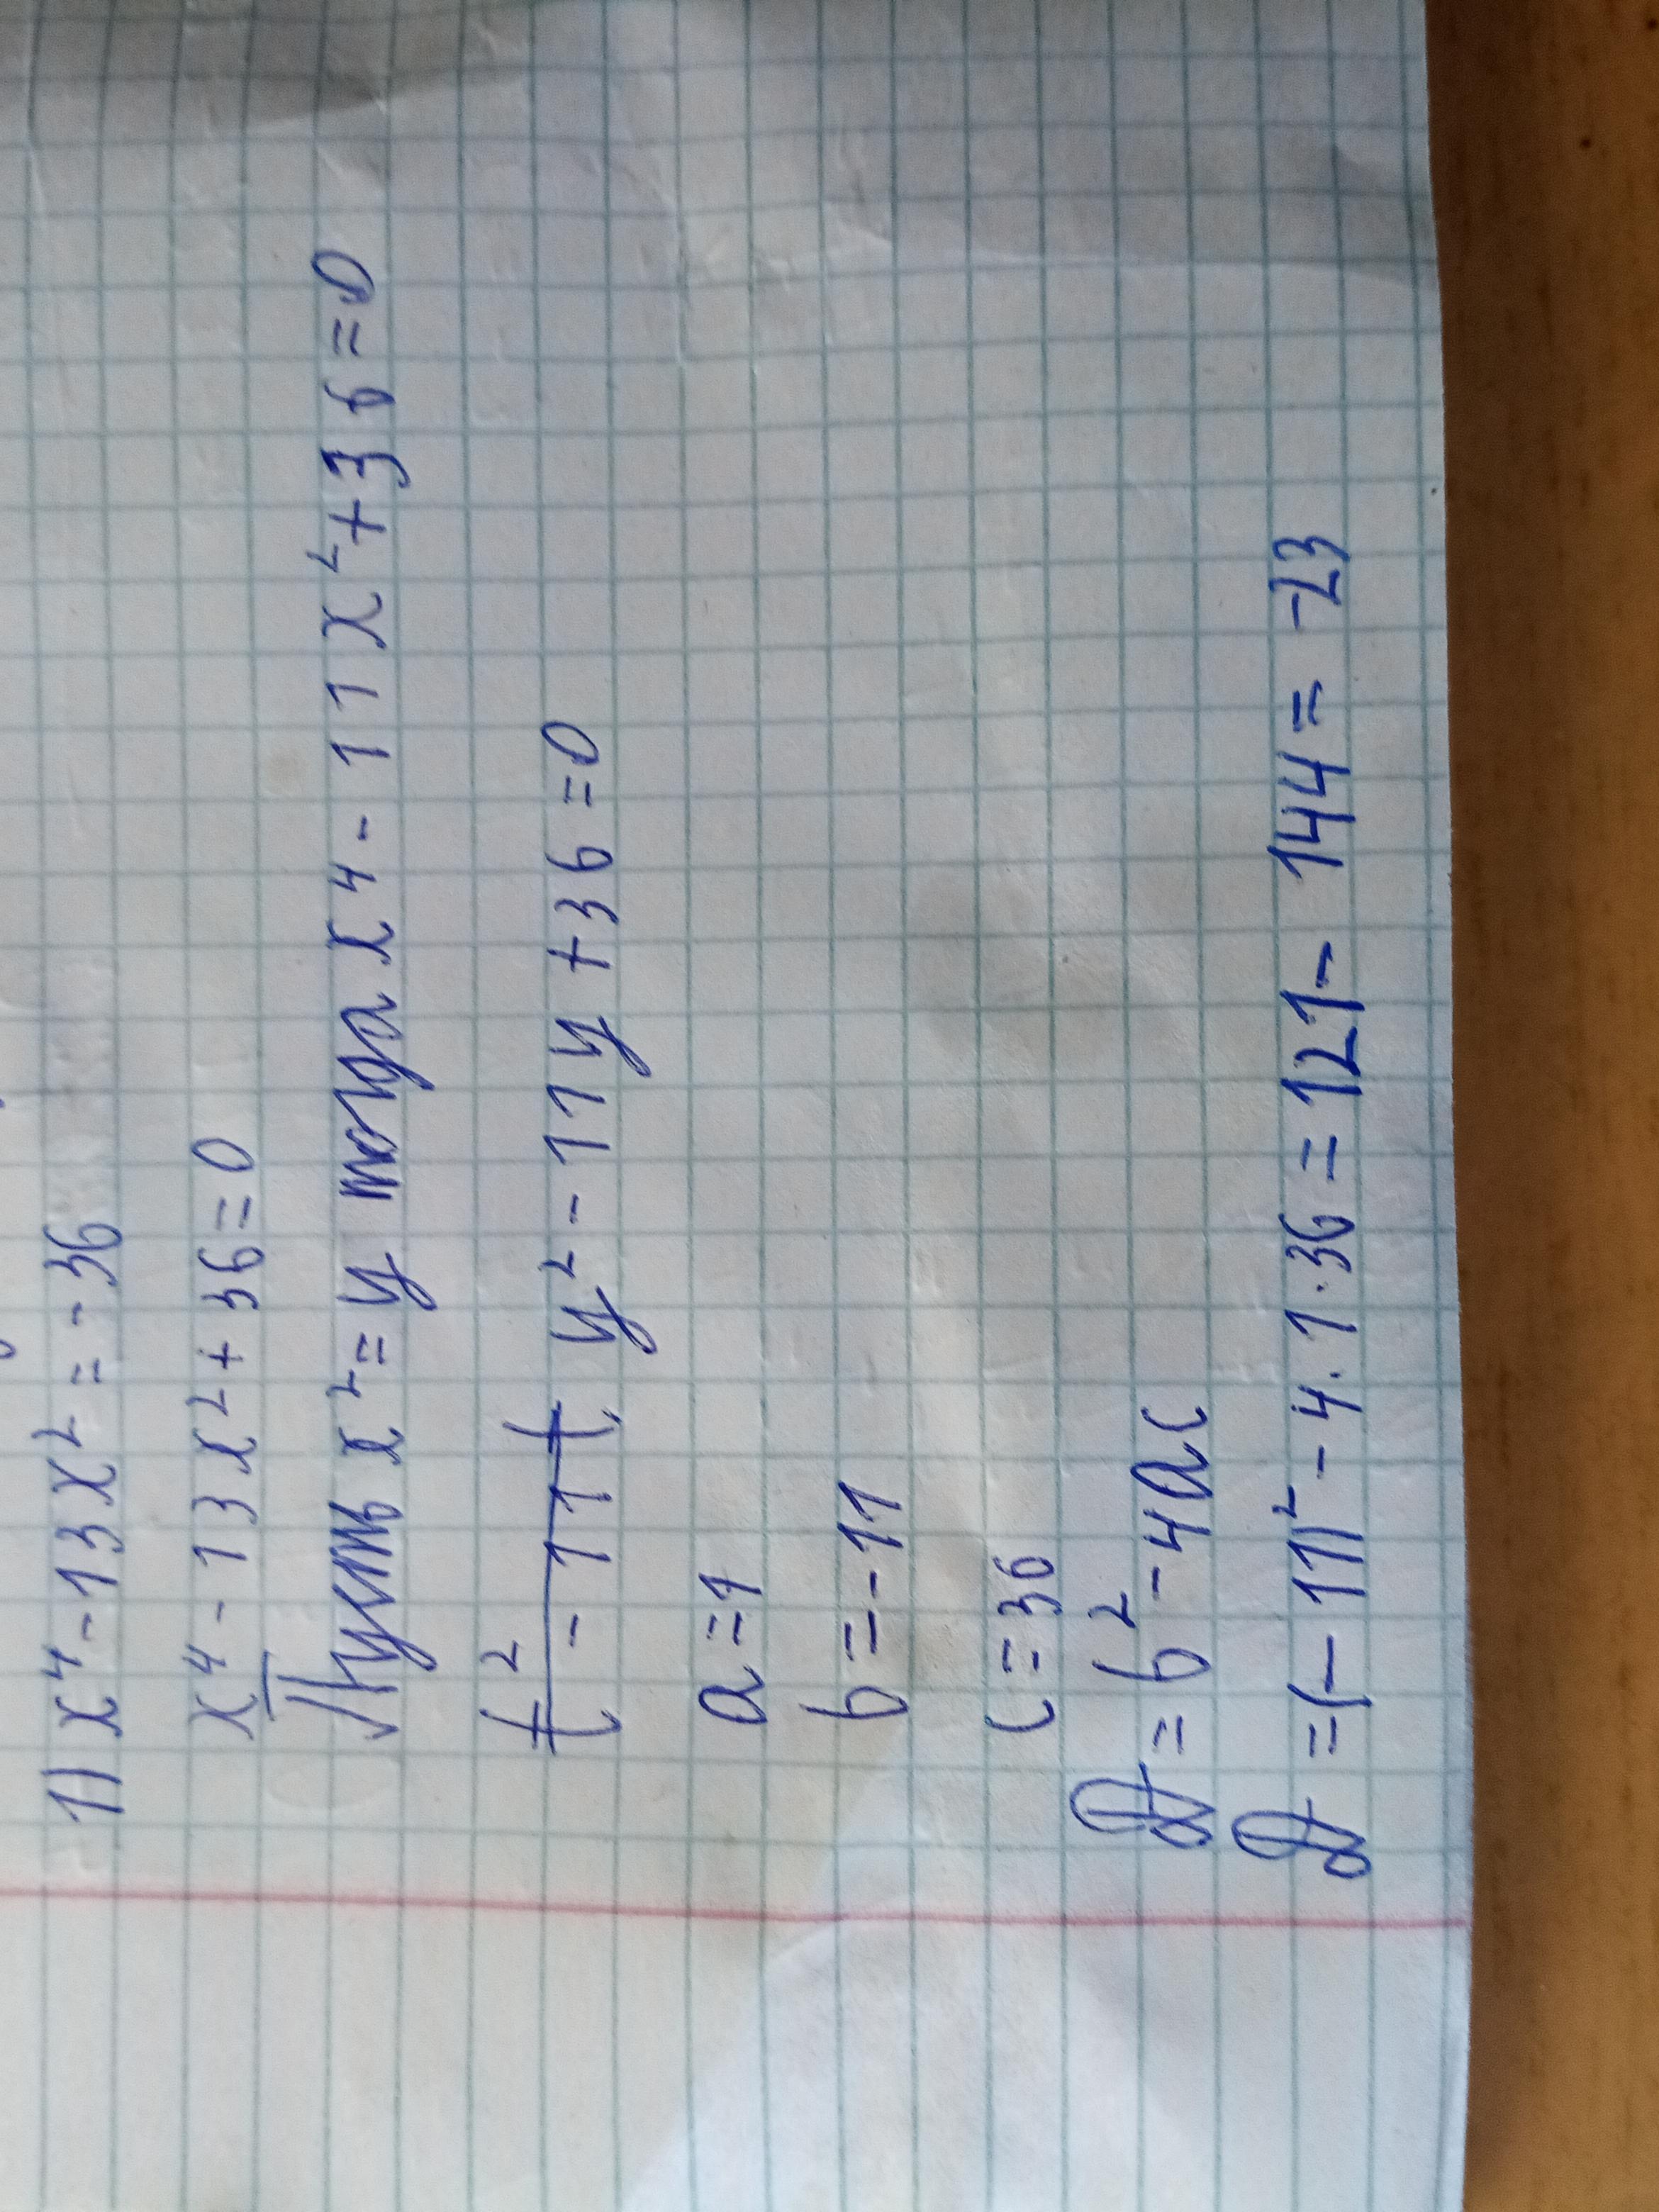 1) x⁴-13x² = -36
x⁴-13x²+36=0
Пусть x²=y тогда x⁴-11x²+36=0
y²-11y+36=0
a=1
b=-11
c=36
D=b²-4ac
D=(-11)²-4·1·36=121-144=-23